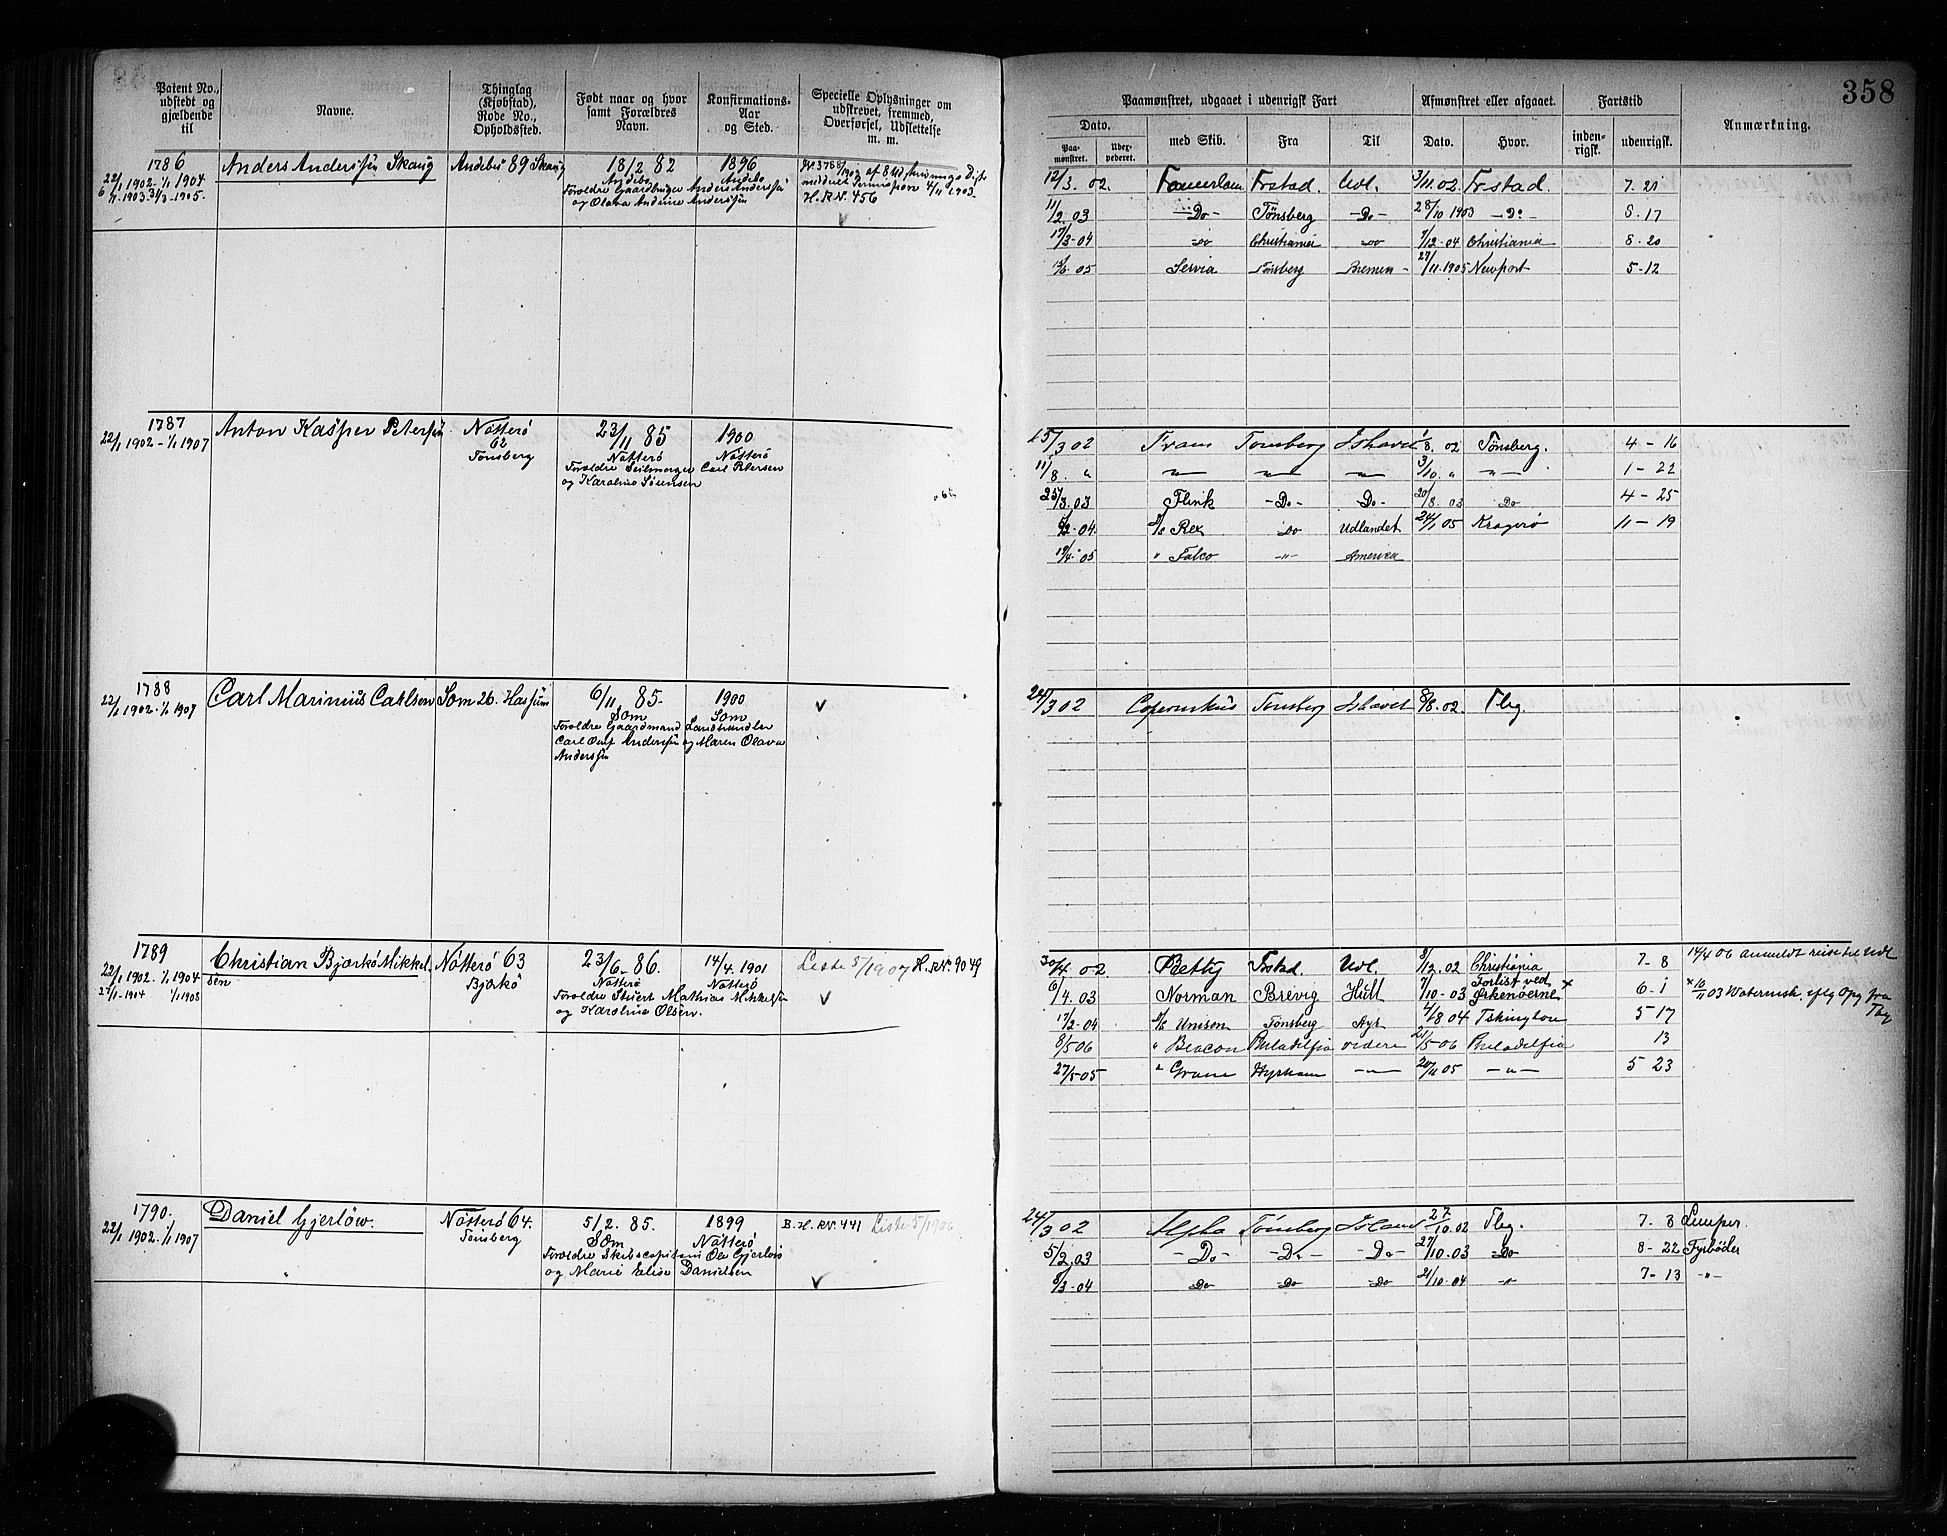 358
Patent No., udstedt og gjældende til
Navne.
Thinglag (Kjøbstad), Rode No., Opholdssted.
Født naar og hvor samt Forældres Navn.
Konfirmations-Aar og Sted.
Specielle Oplysninger om udskrevet, fremmed, Overførsel, Udslettelse m. m.
Paamønstret, udgaaet i udenrigsk Fart
Afmønstret eller afgaaet.
Fartstid
Anmærkning.
Dato.
Paa-mønstret.
med Skib.
Fra
Til
Dato.
Hvor.
inden-rigsk.
udenrigsk.
1786
22/1 1902-1/1 1904
6/1 1903-31/3-1905.
Anders Anderssen Skaug
Andebu 89 Skaug
18/2 82
Andebo
Foreldre Gaardbruger Anders Anderssen
og Olava Andrine Anderssen
1896
Andebo
H. R. N. 456
12/3. 02. Frstad. Udl. 3/11. 02. Frstad. 7. 21
11/2. 03 -Do- Tønsberg -Do- 28/10 1903 -Do- 8. 17
17/3-04 -Do- Christiania -Do- 7/12-04 Christiania 8. 20
6. 05 Servia Tønsberg Bremen - 27/11. 1905 Newport 5-12
1787
22/1 1902-1/1 1907
Anton Kasper Peterssen
Nøtterø
62
Tønsberg
23/11 85
Nøtterø
og Karoline Sørensen
1900
Nøtterø
Carl Petersen
15/3 02 Frans Tønsberg Ishavet 8. 02 Tønsberg. 4-16
11/8. " -"- -"- -"- 3/10. " -"- 1-22
25/3. 03 Flink -Do- Do- 20/8. 03 Do 4-25
2-04. S/S Rex Do Udlandet 24/1 05 Kragerø 11-19
19/4. 05 " Falco -"- America
1788
22/1 1902-1/1 1907
Carl Marinius Carlsen
Sem 26. Hassum
6/11 85-
Sem
Foreldre Gaardmand Landhandler
Carl Oluf Anderssen og Maren Olava
Anderssen
1900
Sem
24/3 02 Copernikus Tønsberg Ishavet 8/8. 02. Tbg.
1789
22/1 1902. 1/1 1904
27/1-1904 1/1 1908
Christian Bjerkø Mikkelsen
Nøtterø 63
Bjerkø
23/6-86.
Nøtterø
Foreldre Stuert Mathias Mikkelsen
og Karoline Olsen.
14/4. 1901
Nøtterø
Liste 5/1907 H. R. N. 9049
30/4. 02 Betty Frstad. Udl. 8/12. 02 Christiania 7-8
6/4. 03 Norman Brevig Hull 7/10-03 Forlist ved Ørkenøerne x 6-1
17/2-04 S/S Unison Tønsberg 4/8 04 5-17
8/5 06 " Beacon Philadelfia videre 21/5-06 Philadelfia 13
27/5-05 " Grane 20/11 05 -"- 5 23
14/4 06 anmeldt reise til Udl
1790.
22/1 1902. 1/1 1907
Daniel Gjerløw.
Nøtterø 64.
Tønsberg
5/2. 85.
Sem
Foreldre Skibscaptein Ole Gjerløw
og Marie Elise Danielsen
1899
Nøtterø
B. H. R. N. 441
Liste 5/1906
24/3 02 Alpha Tønsberg Island 27/10. 02 Tbg. 7-8 Lemper.
5/2. 03 -Do- -Do- -Do- 27/10. 03 -Do- 8-22 Fyrbøder
8/3-04 -Do- -Do- -Do- 21/10-04 -"- 7-13 -"-